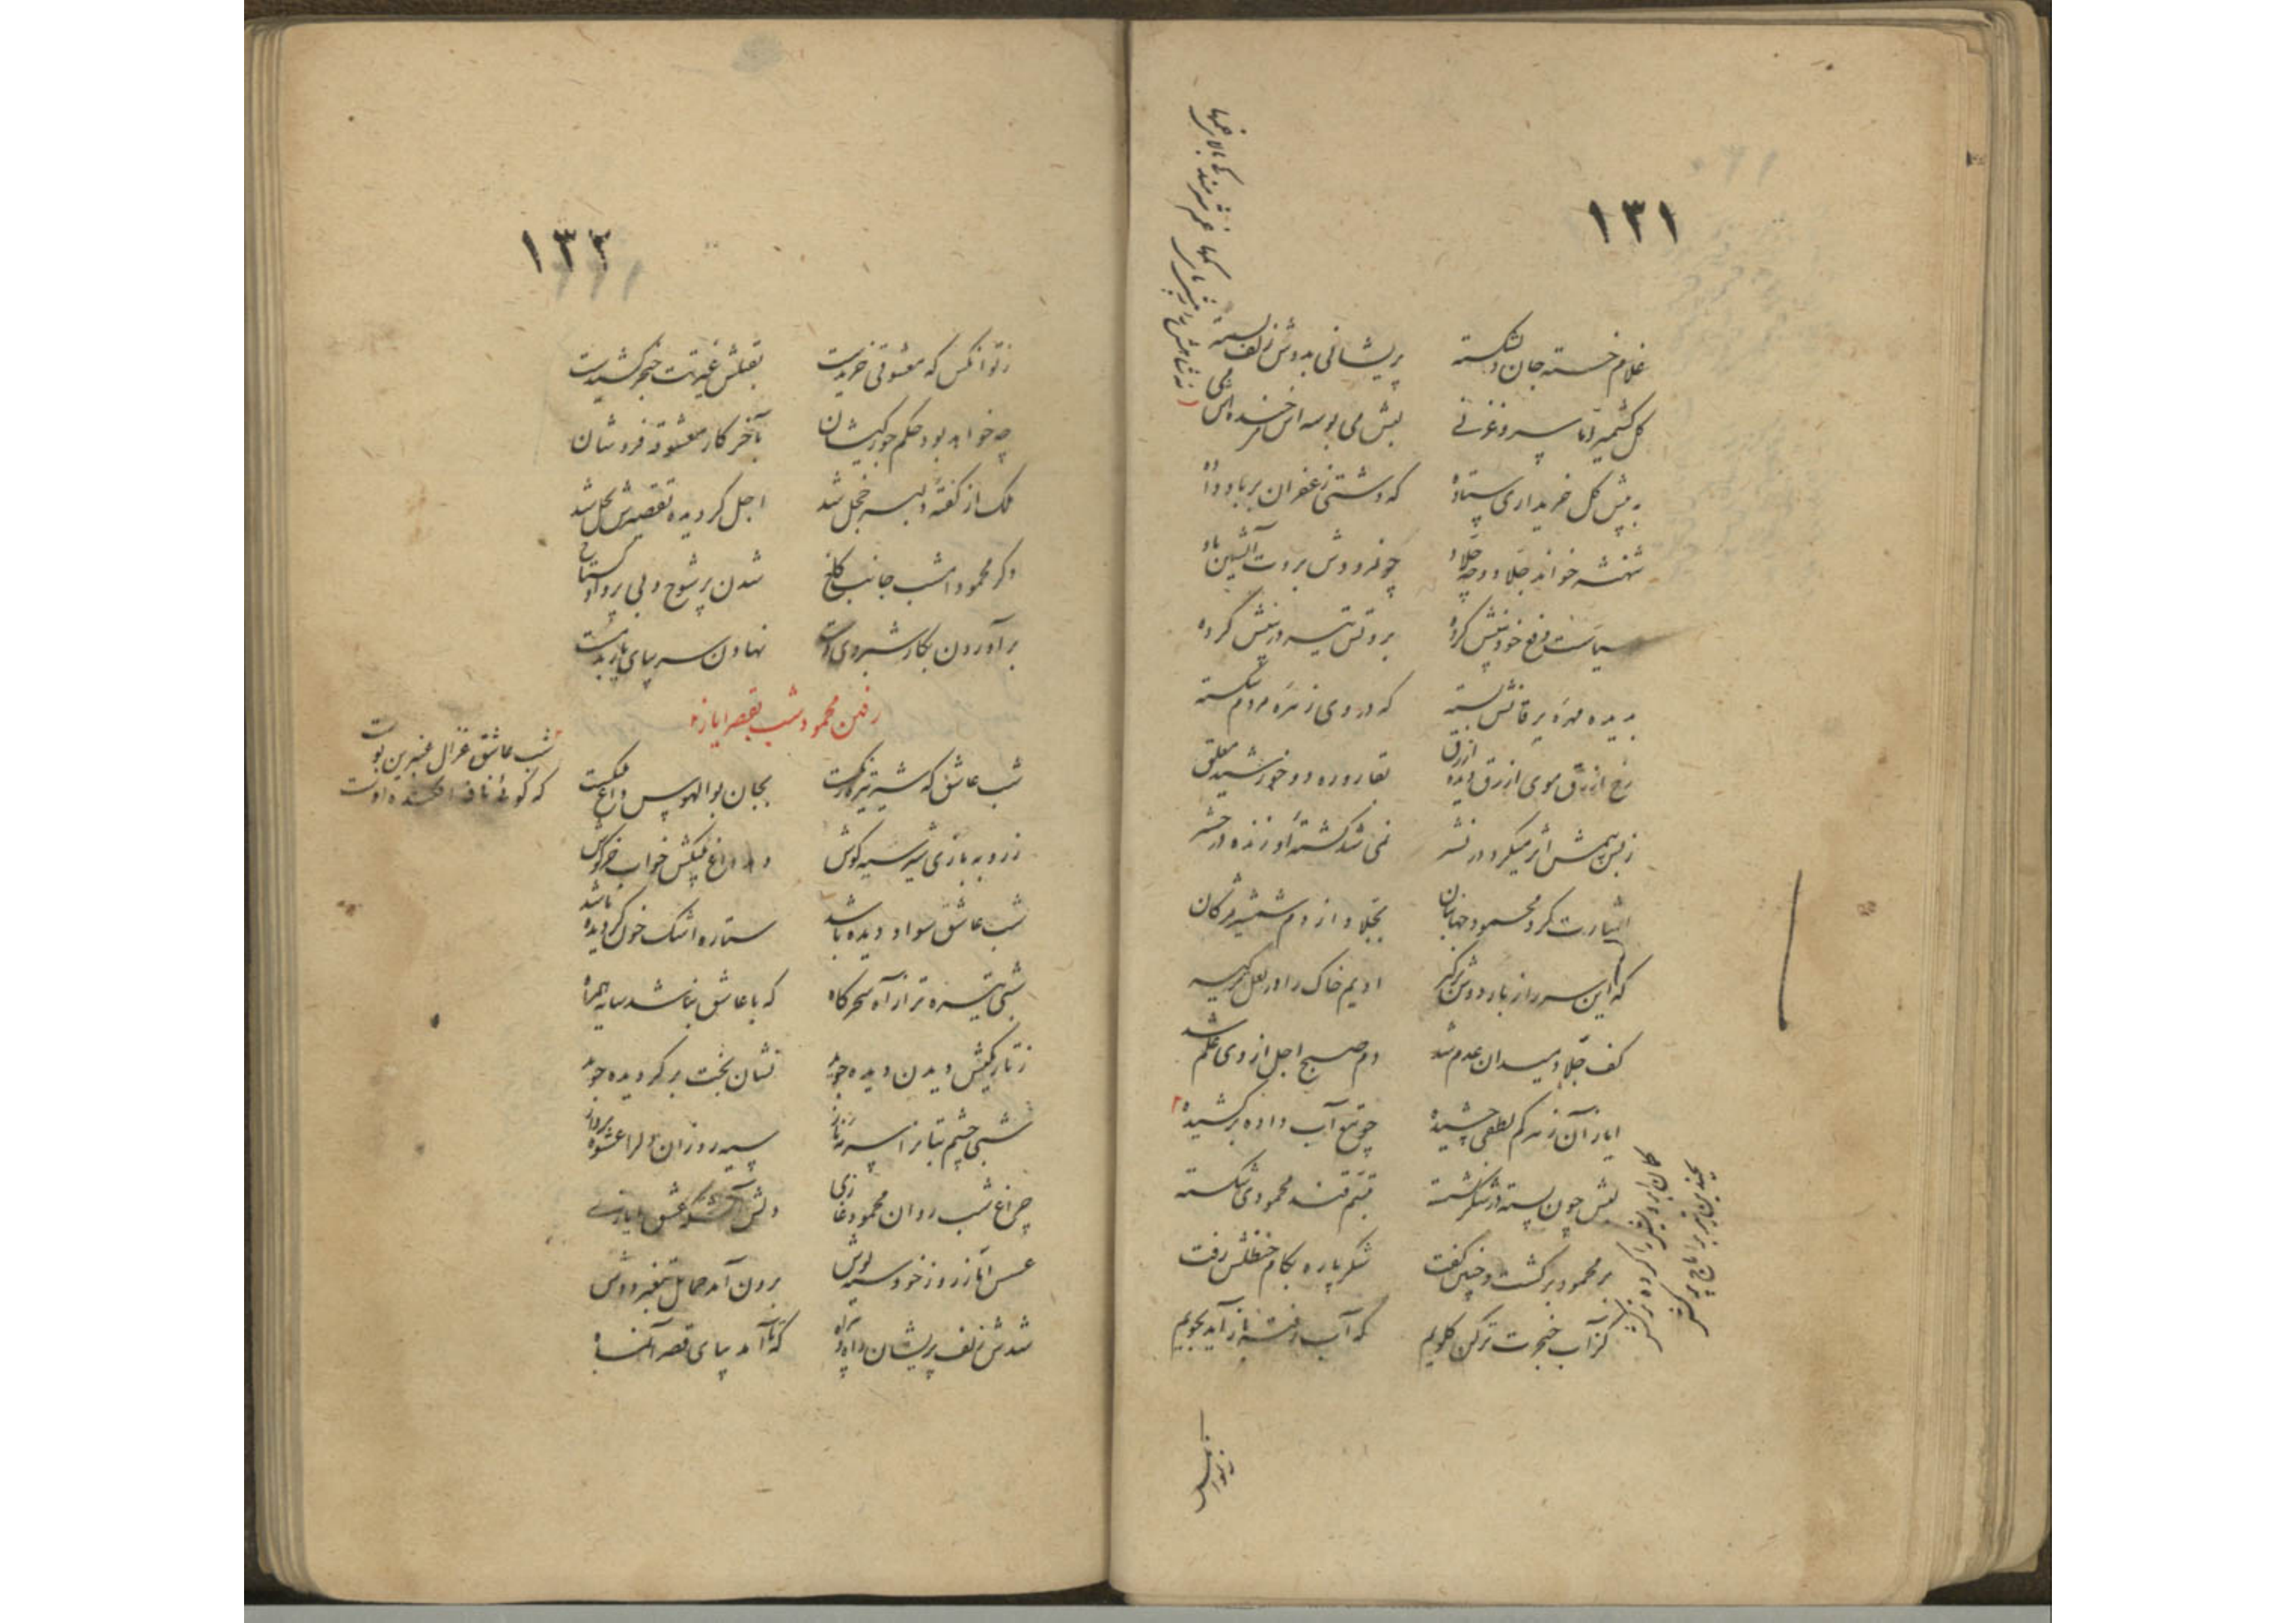 ۱۳۱
غلام خسته جان دلشکسته پریشانی بدوش زلف بسته
گل کشمیر و تا سر و غزنی لبش می بوسه اش خنده
به پیش گل خریداری ستاده که دشتی زعفران بر باد داده
شهنشه خواند جلاد و چه جلاد چو نمرودش بروت آتشین باد
سیاست وضع خود پیشش کرده بروتش تیشه در پیشش کرده
بدیده مهره یرقانش بسته که در وی زهره مردم شکسته
رخ ازرق موی ازرق دیده ازرق بقاروره دو خورشید معلق
ز بس بیمش اثر میکرد در نشر نمی شد کشته او زنده در حشر
اشارت کرد محمود جهانبان بجلاد از دم شمشیر مژگان
که این سر را ز بار دوش برگیر ادیم خاک را در لعل برگیر
کف جلاد میدان عدم شد دم صبح اجل از وی علم شد
ایاز آن زهر کم لطفی چشیده چو تیغ آب داده برکشیده
لبش چون پسته در شکر نشسته تبسم قند محمودی شکسته
بر محمود برگشت و چنین گفت شکر پاره بکام حنظلش رفت
کز آب خنجرت تر کن گلویم که آب رفته باز آید بجویم
۱۳۲
ز تو آنکس که معشوقی خریدست بقتلش غیرتت خنجر کشیدست
چه خواهد بود حکم جورکیشان بآخر کار معشوقه فروشان
ملک از گفته دلبر خجل شد اجل گردیده تقصیرش بحل شد
دگر محمود امشب جانب کاخ شدن پر شوخ و بی پروا و گستاخ
برآوردن بکار شبروی دست نهادن سر بپای یار بدمست
رفتن محمود شب بقصر ایاز
شب عاشق که شیر تیره رنگست بجان بوالهوس داغ پلنگست
شب عاشق غزال عنبرین بوست
که گوئی نافه افکنده اوست
ز روبه بازی شیر سیه گوش دهد داغ پلنگش خواب خرگوش
شب عاشق سواد دیده باشد ستاره اشک خون گردیده باشد
شبی تیره تر از آه سحرگاه که با عاشق نباشد سایه همراه
ز تاریکیش دیدن دیده جوید نشان بخت برگردیده جوید
شبی چشم بتانرا سرمه ناز سیه روزان دلرا عشوه پرداز
چراغ شب روان محمود غازی دلش آتشکده عشق ایازی
عسس آسا ز روز خود سیه پوش برون آمد حمایل تیغ بر دوش
شدش زلف پریشان دام راه که تا آمد بپای قصر آن ماه